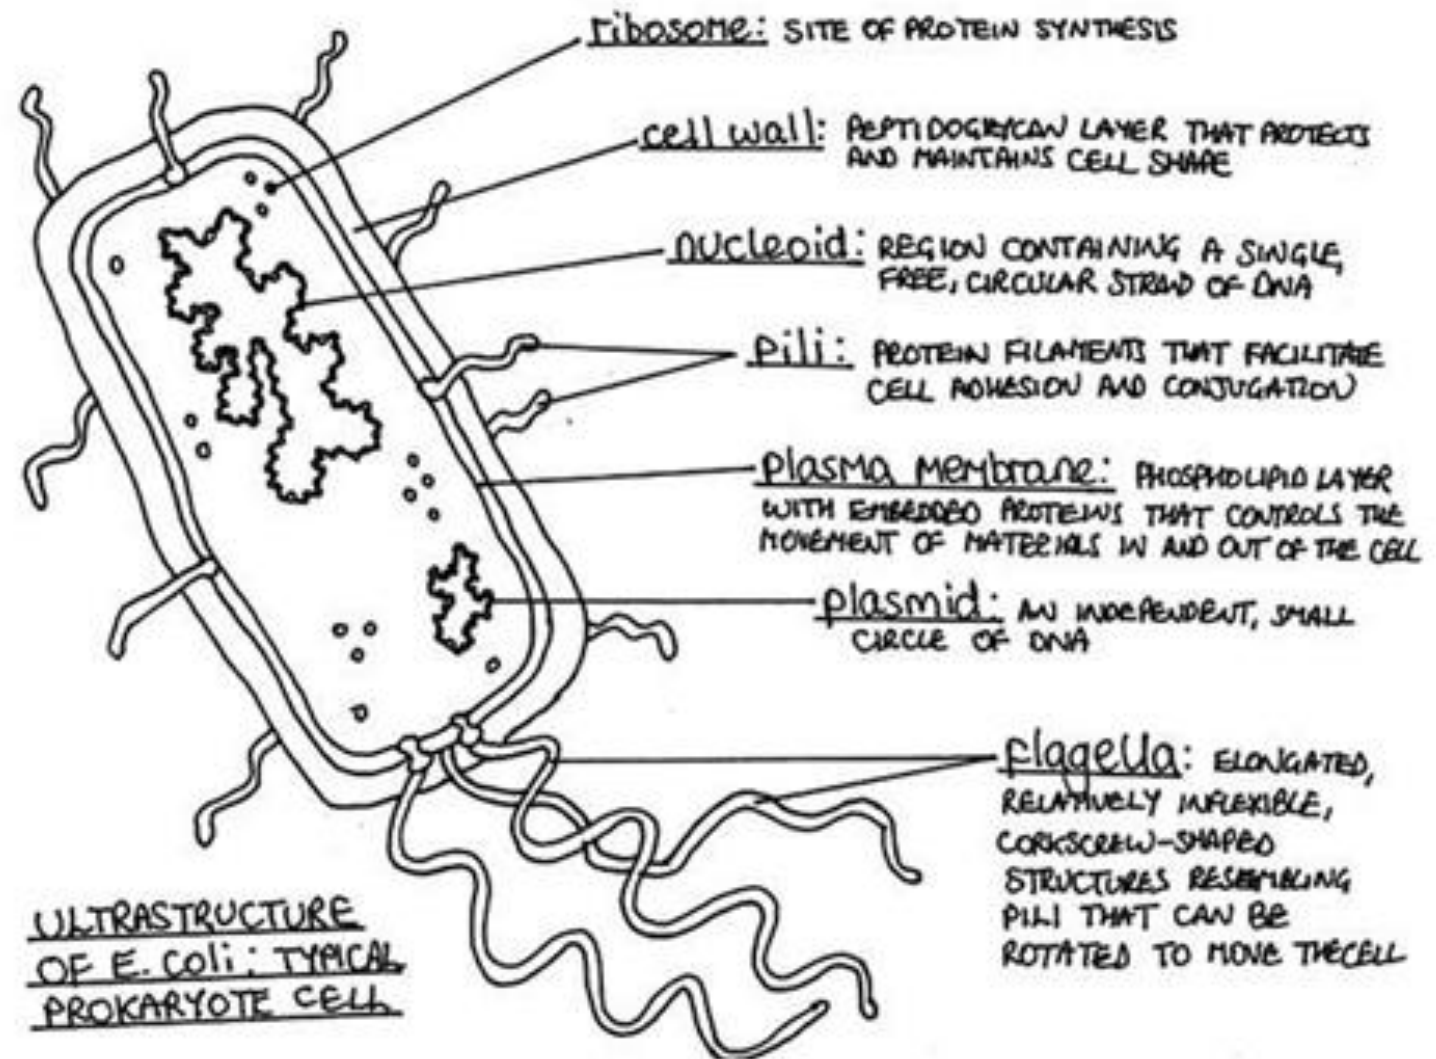 ribosome: SITE OF PROTEIN SYNTHESIS
cell wall: PEPTIDOGLYCAN LAYER THAT PROTECTS
AND MAINTAINS CELL SHAPE
nucleoid: REGION CONTAINING A SINGLE,
FREE, CIRCULAR STRAND OF DNA
Pili: PROTEIN FILAMENTS THAT FACILITATE
CELL ADHESION AND CONJUGATION
plasma membrane: PHOSPHOLIPID LAYER
WITH EMBEDDED PROTEINS THAT CONTROLS THE
MOVEMENT OF MATERIALS IN AND OUT OF THE CELL
plasmid: AN INDEPENDENT, SMALL
CIRCLE OF DNA
flagella: ELONGATED,
RELATIVELY INFLEXIBLE,
CORKSCREW-SHAPED
STRUCTURES RESEMBLING
PILI THAT CAN BE
ROTATED TO MOVE THE CELL
ULTRASTRUCTURE
OF E. coli: TYPICAL
PROKARYOTE CELL